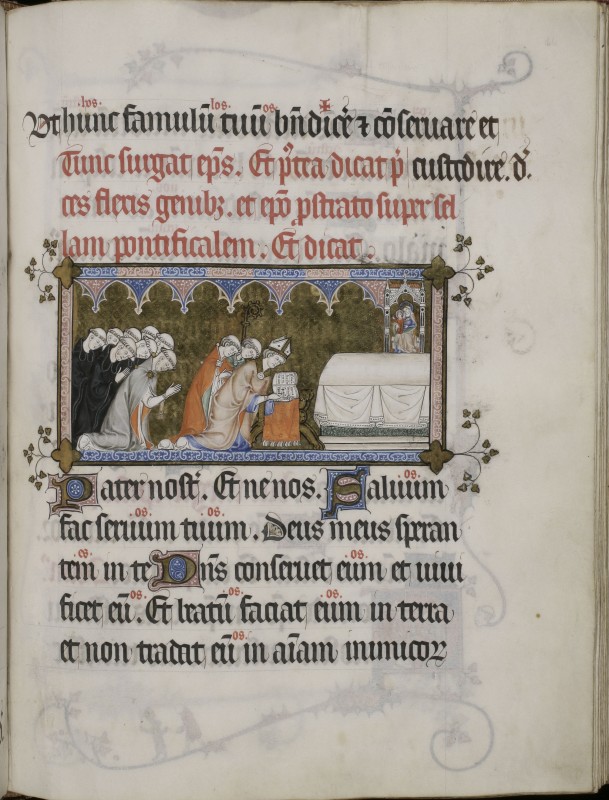 hos. los. os.
Vt hunc famulū tuū bn̄diće ⁊ cōseruare et
Tunc surgat ep̄s. Et p̄tea dicat p̄ custodire. d̄.
ces flexis genibꝫ. et ep̄o p̄strato super sel
lam pontificalem. Et dicat.
os.
Pater nost̄. Et ne nos. Saluum
os. os.
fac seruum tuum. Deus meus speran
es os.
tem in te Dn̄s conseruet eum et uiui
os. os. os.
ficet eū. Et beatū faciat eum in terra
os.
et non tradat eū in aīam inimicoꝝ